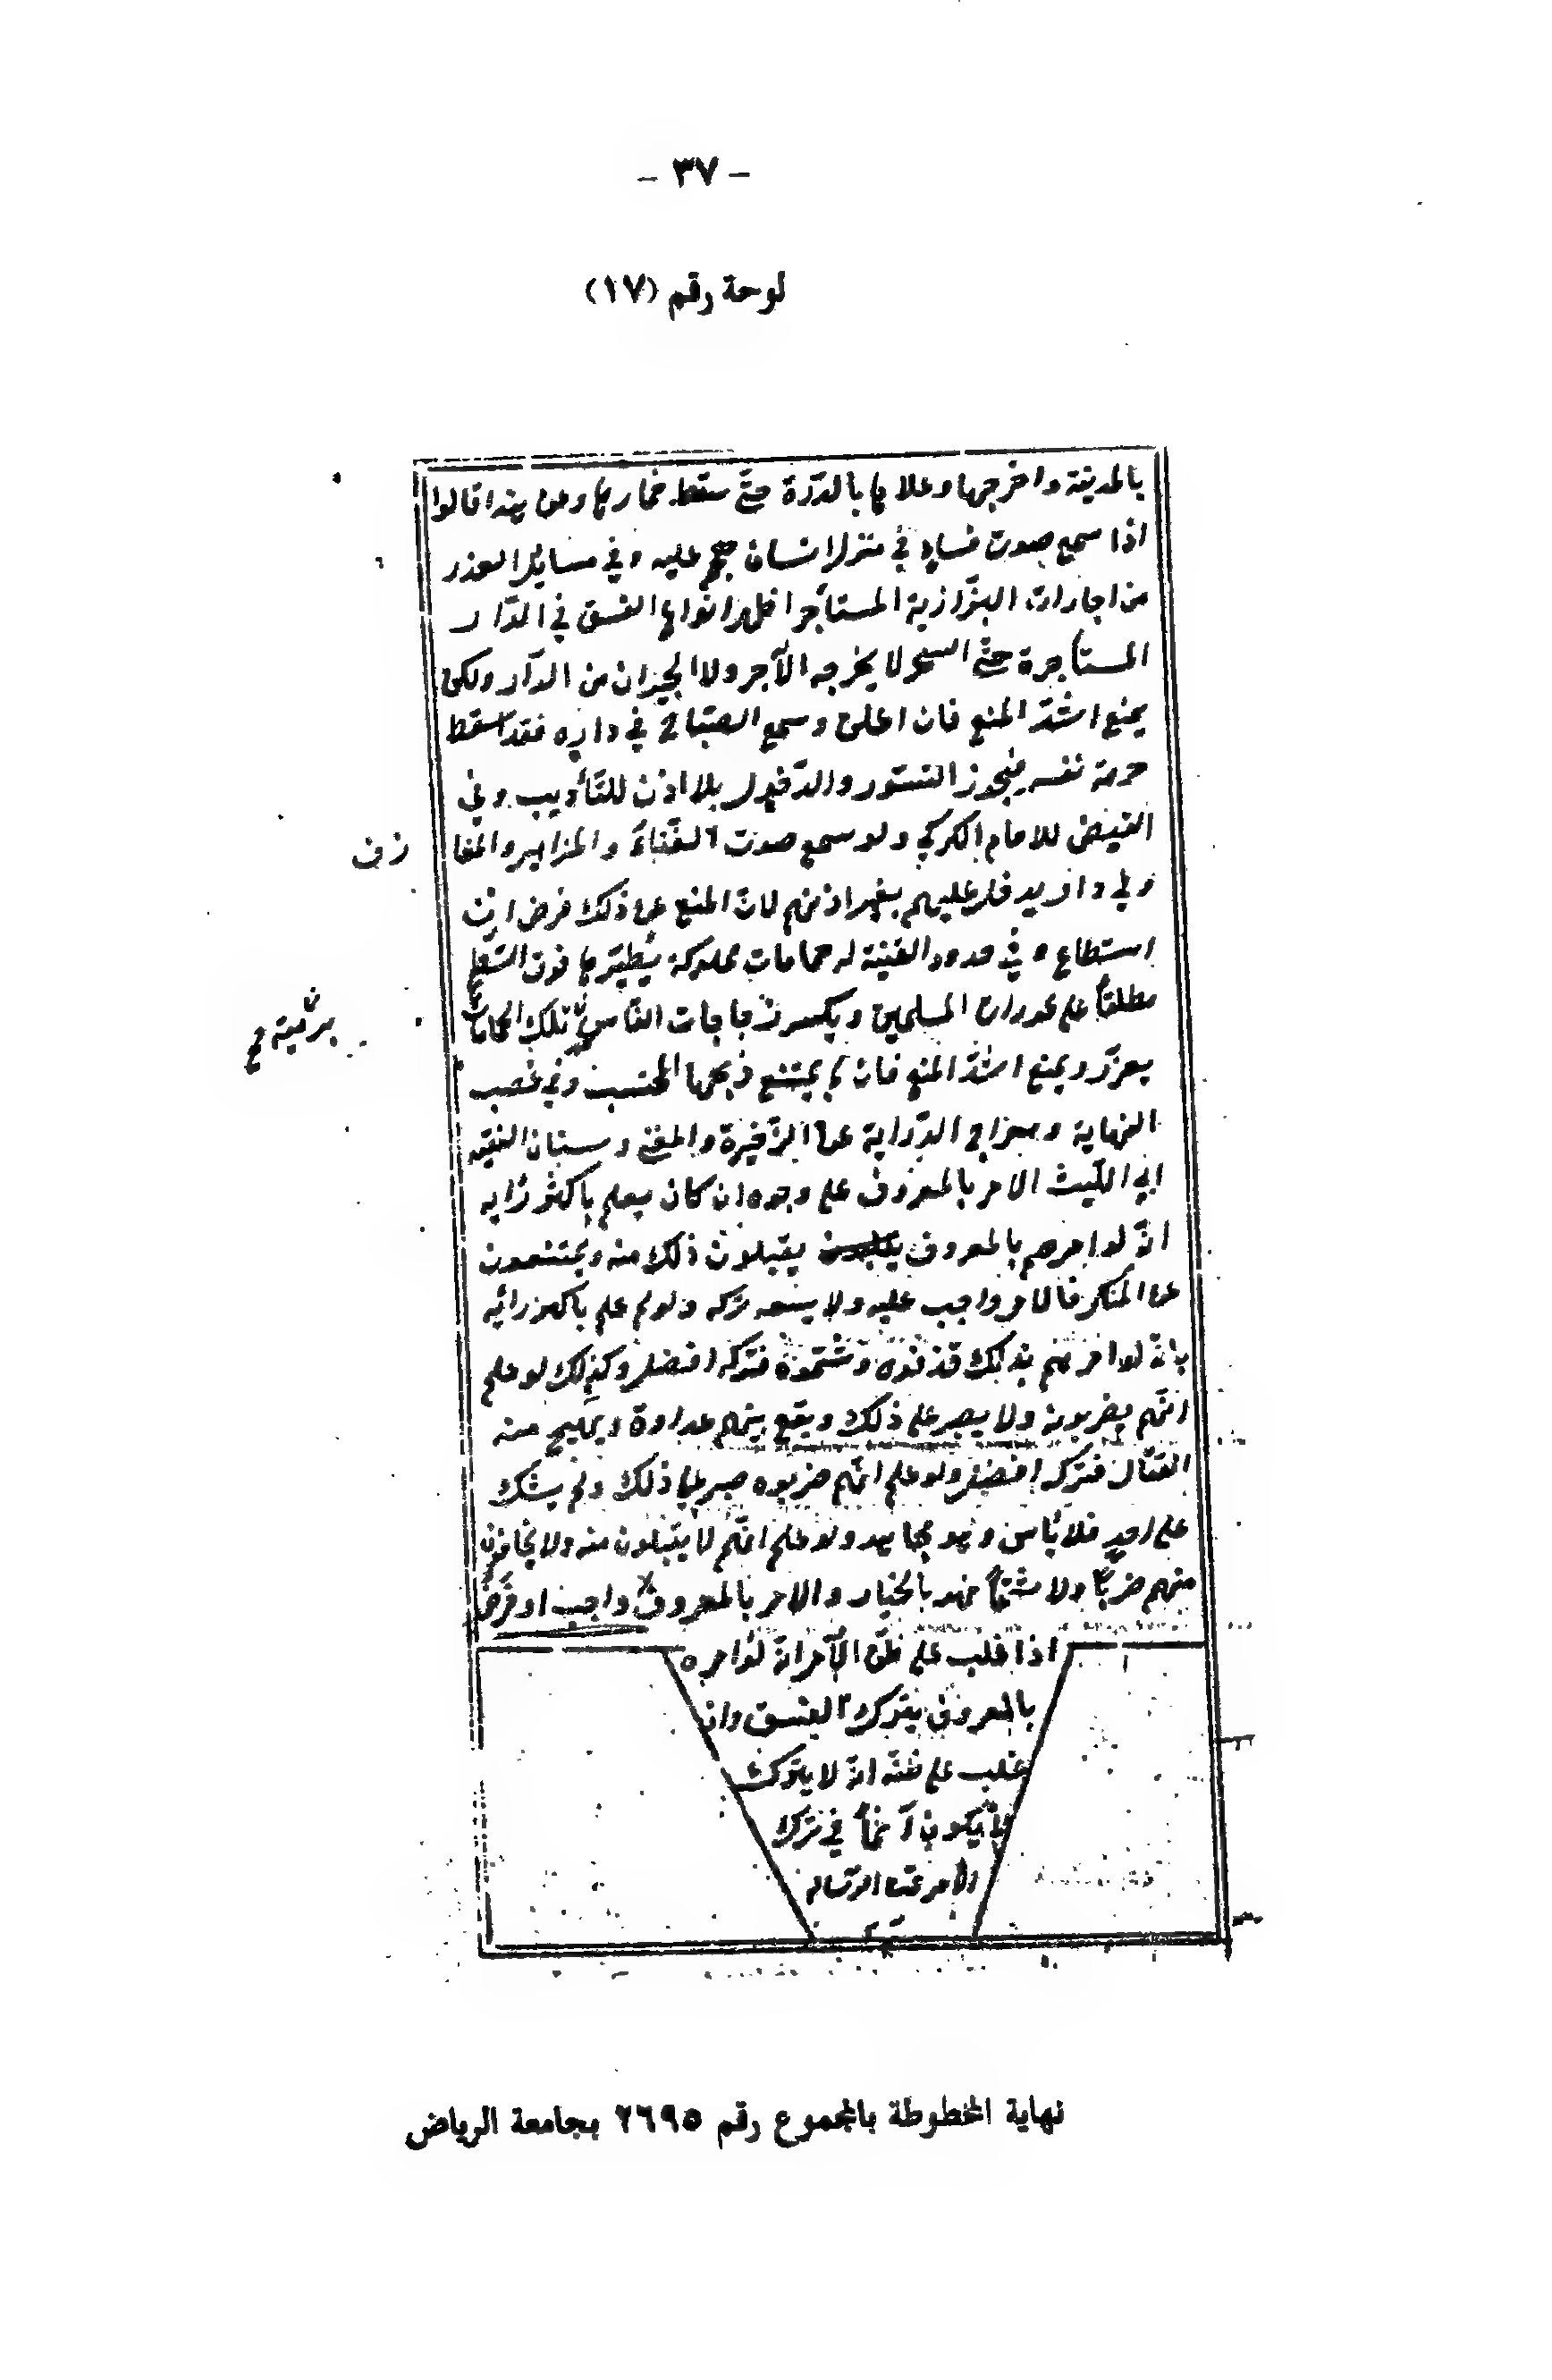 - ٣٧ -
لوحة رقم (١٧)
بالمدينة واخرجها وعلاها بالدرّة حتّى سقط خمارها وعن هذا قالوا
اذا سمع صوت فساد في منزل انسان هجم عليه وفي مسائل العذر
من اجارات البزّازية المستأجر اظهر انواع الفسق في الدّار
المستأجرة حتّى السحر لا يخرجه الآجر ولا الجيران من الدّار ولكن
يمنع اشدّ المنع فان اعلن وسمع الصّياح في داره فقد اسقط
حرمة نفسه فيجوز التسوّر والدّخول بلا اذن للتّأديب وفي
الفيض للامام الكركي ولو سمع صوت الغناء والمزامير والمعا
زف
في دار يدخل عليهم بغير اذنهم لانّ المنع عن ذلك فرض ان
استطاع وفي حدود القنية له حمامات مملوكة يطيّرها فوق السّطح
مطلعاً على عورات المسلمين ويكسر زجاجات النّاس تلك الحمامات
برميته صح
يعزّر ويمنع اشدّ المنع فان لم يمتنع ذبحها المحتسب وفي غصب
النهاية ومعراج الدّراية عن الذّخيرة والمغني وبستان الفقيه
ابي اللّيث الامر بالمعروف على وجوه ان كان يعلم باكثر رأيه
انّه لو امرهم بالمعروف يقبلون ذلك منه ويمتنعون
عن المنكر فالامر واجب عليه ولا يسعه تركه ولو علم باكبر رائيه
بانّه لو امرهم بذلك قذفوه وشتموه فتركه افضل وكذلك لو علم
انّهم يضربونه ولا يصبر على ذلك ويقع بينهم عداوة ويهيج منه
القتال فتركه افضل ولو علم انّهم ضربوه صبر على ذلك ولم يشك
على احد فلا بأس وهو مجاهد ولو علم انّهم لا يقبلون منه ولا يخافون
منهم ضرباً ولا شتماً فهو بالخيار والامر بالمعروف واجب او فرض
اذا غلب على ظنّ الآمر انّه لو امره
بالمعروف يترك الفسق وان
غلب على ظنّه انّه لا يترك
لا يكون آثماً في ترك
الأمر تمت الرّسالة
تم
نهاية المخطوطة بالمجموع رقم ٢٦٩٥ بجامعة الرياض